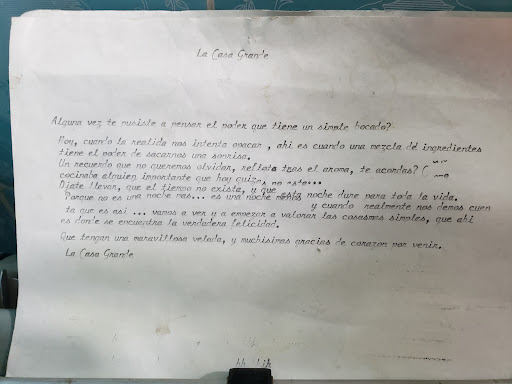 La Casa Grande
Alguna vez te pusiste a pensar el poder que tiene un simple bocado?
Hoy, cuando la realida nos intenta opacar , ahi es cuando una mezcla de ingredientes
tiene el poder de sacarnos una sonrisa.
Un recuerdo que no queremos olvidar, relata tras el aroma, te acordas? (
cocinaba alguien importante que hoy quizas no esta...
Djate llevar, que el tiempo no exista, y que esta noche dure para toda la vida.
Porque no es una noche mas... es una noche menos y cuando realmente nos demos cuen
ta que es asi ... vamos a ver y a empezar a valorar las cosasmas simples, que ahi
es donde se encuentra la verdadera felicidad.
Que tengan una maravillosa velada, y muchisimas gracias de corazon por venir.
La Casa Grande